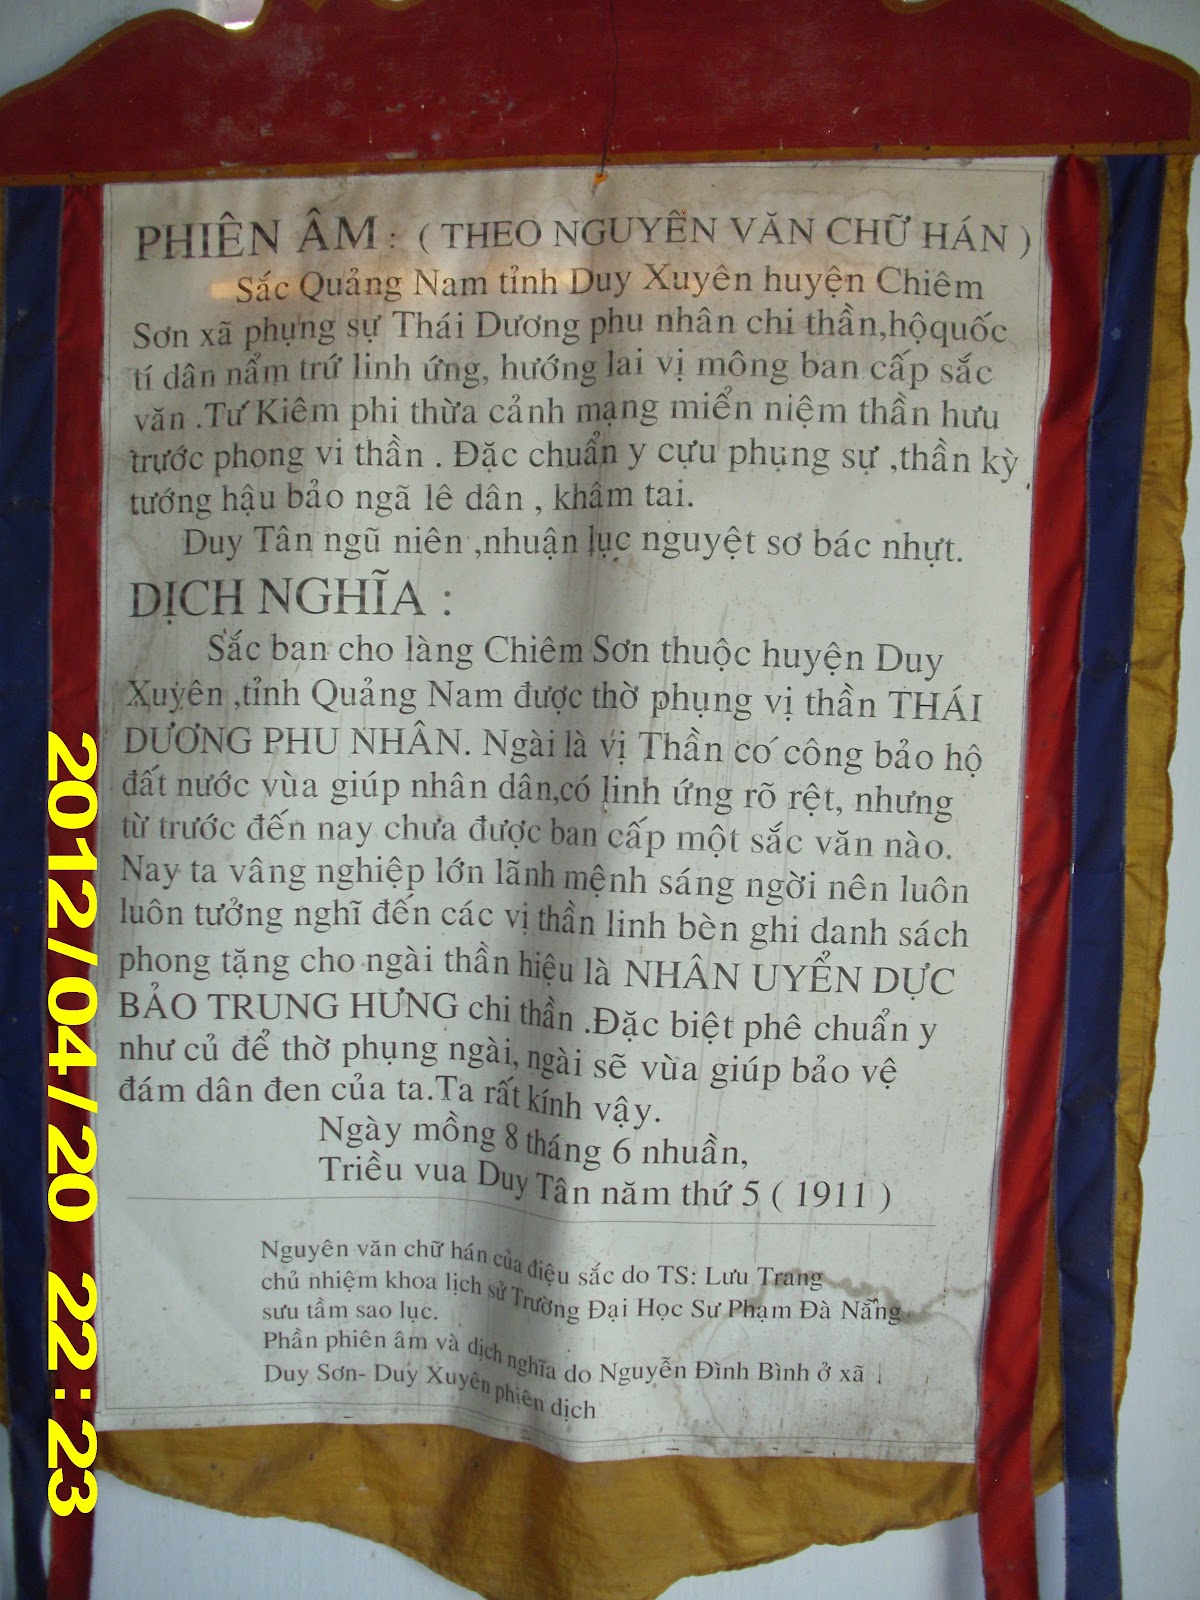 PHIÊN ÂM : ( THEO NGUYỄN VĂN CHỮ HÁN )
Sắc Quảng Nam tỉnh Duy Xuyên huyện Chiêm
Sơn xã phụng sự Thái Dương phu nhân chi thần,hộquốc
tí dân nẩm trứ linh ứng, hướng lai vị mông ban cấp sắc
văn .Tư Kiêm phi thừa cảnh mạng miển niệm thần hưu
trước phong vi thần . Đặc chuẩn y cựu phụng sự ,thần kỳ
tướng hậu bảo ngã lê dân , khâm tai.
Duy Tân ngũ niên ,nhuận lục nguyệt sơ bác nhựt.
DỊCH NGHĨA :
Sắc ban cho làng Chiêm Sơn thuộc huyện Duy
Xuyên ,tỉnh Quảng Nam được thờ phụng vị thần THÁI
DƯƠNG PHU NHÂN. Ngài là vị Thần có công bảo hộ
đất nước vùa giúp nhân dân,có linh ứng rõ rệt, nhưng
từ trước đến nay chưa được ban cấp một sắc văn nào.
Nay ta vâng nghiệp lớn lãnh mệnh sáng ngời nên luôn
luôn tưởng nghĩ đến các vị thần linh bèn ghi danh sách
phong tặng cho ngài thần hiệu là NHÂN UYỂN DỰC
BẢO TRUNG HƯNG chi thần .Đặc biệt phê chuẩn y
như củ để thờ phụng ngài, ngài sẽ vùa giúp bảo vệ
đám dân đen của ta.Ta rất kính vậy.
Ngày mồng 8 tháng 6 nhuần,
Triều vua Duy Tân năm thứ 5 ( 1911 )
Nguyên văn chữ hán của điệu sắc do TS: Lưu Trang
chủ nhiệm khoa lịch sử Trường Đại Học Sư Phạm Đà Nẵng
sưu tầm sao lục.
Phần phiên âm và dịch nghĩa do Nguyễn Đình Bình ở xã
Duy Sơn- Duy Xuyên phiên dịch
2012/04/20 22:23